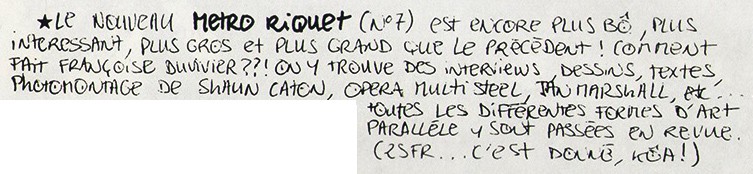 ★LE NOUVEAU METRO RIQUET (N°7) EST ENCORE PLUS BÔ, PLUS
INTERESSANT, PLUS GROS ET PLUS GRAND QUE LE PRÉCÉDENT! COMMENT
FAIT FRANÇOISE DUVIVIER??! ON Y TROUVE DES INTERVIEWS, DESSINS, TEXTES,
PHOTOMONTAGE DE SHAUN CATON, OPERA MULTI STEEL, IAN MARSHALL, etc...
TOUTES LES DIFFÉRENTES FORMES D'ART
PARALLÈLE Y SONT PASSÉES EN REVUE.
(25FR... C'EST DONNÉ, KÔA!)